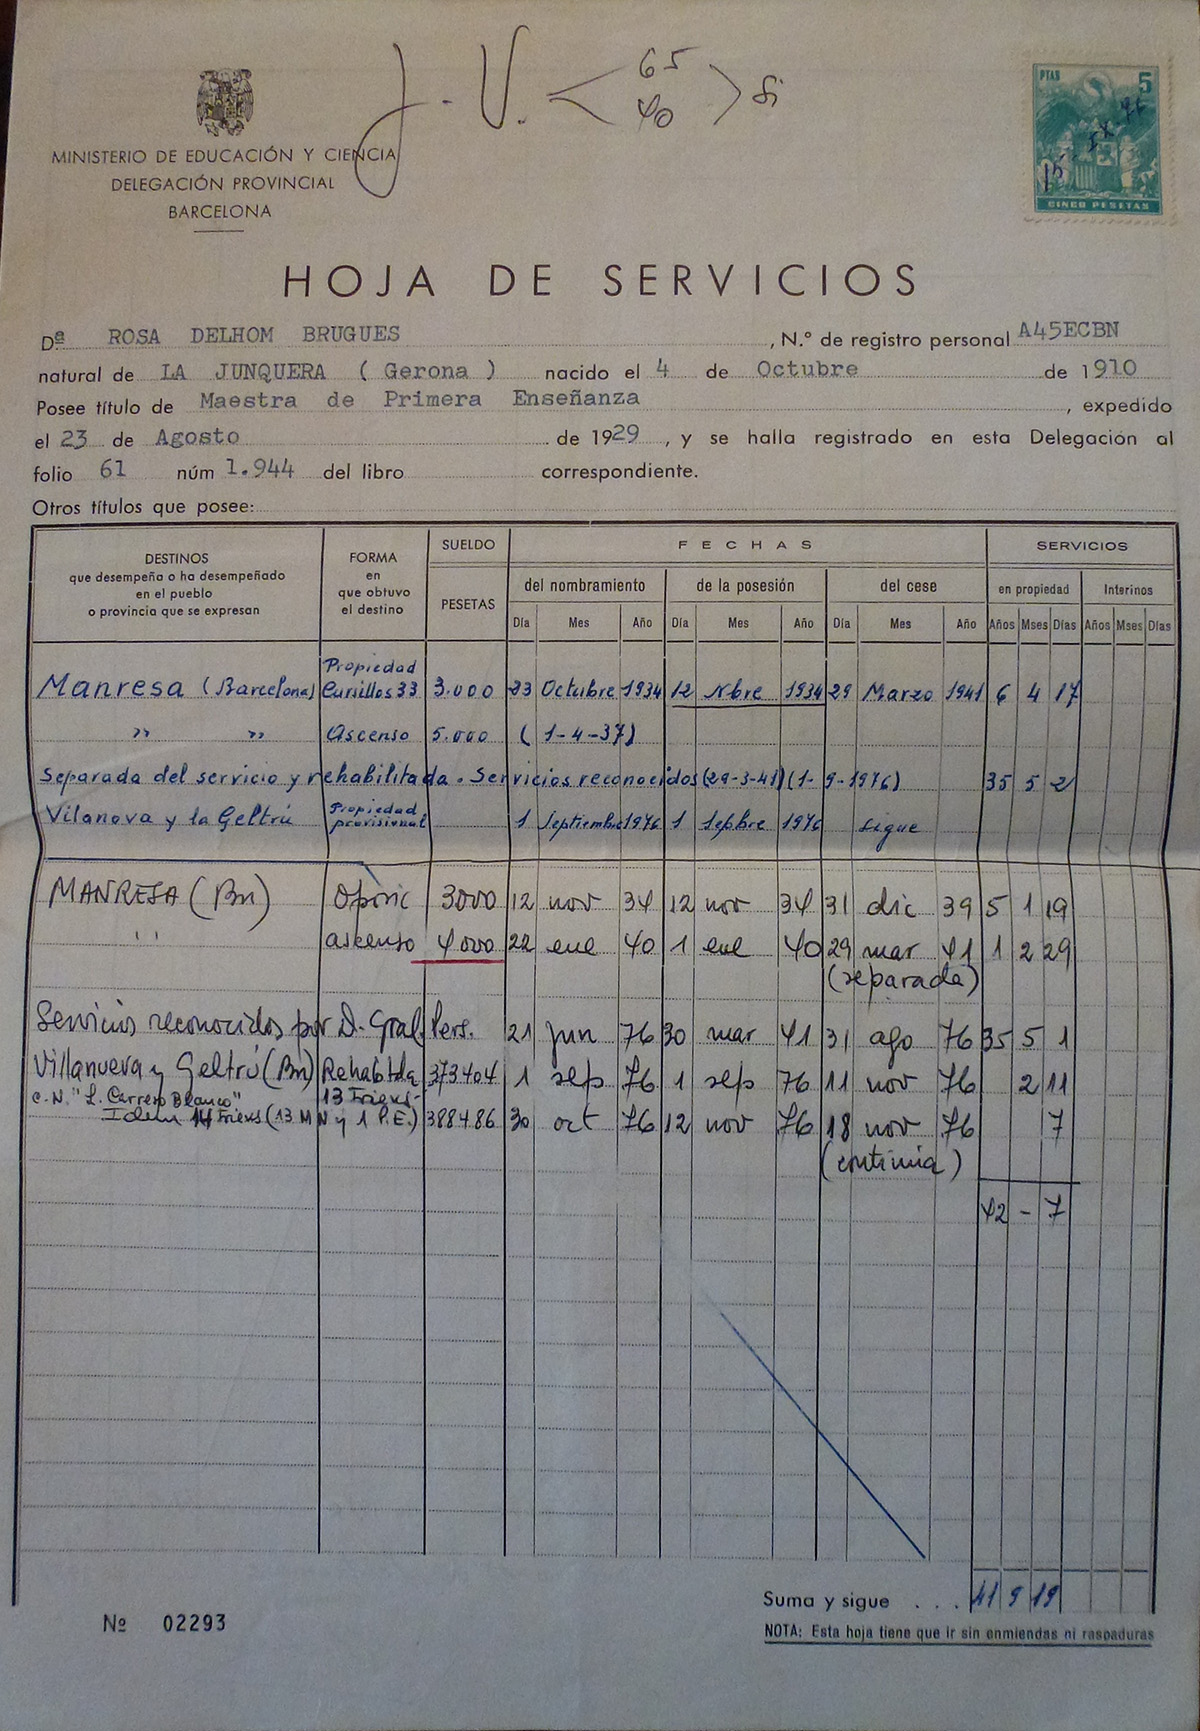 J. V. < 65 40 > Si
PTAS 5
15 - IX - 76
CINCO PESETAS
MINISTERIO DE EDUCACIÓN Y CIENCIA
DELEGACIÓN PROVINCIAL
BARCELONA
HOJA DE SERVICIOS
Dª ROSA DELHOM BRUGUES , N.º de registro personal A45ECBN
natural de LA JUNQUERA ( Gerona ) nacido el 4 de Octubre de 1910
Posee título de Maestra de Primera Enseñanza , expedido
el 23 de Agosto de 1929 , y se halla registrado en esta Delegación al
folio 61 núm 1.944 del libro correspondiente.
Otros títulos que posee:
DESTINOS que desempeña o ha desempeñado en el pueblo o provincia que se expresan FORMA en que obtuvo el destino SUELDO PESETAS FECHAS SERVICIOS
del nombramiento de la posesión del cese en propiedad Interinos
Día Mes Año Día Mes Año Día Mes Año Años Mses Días Años Mses Días
Manresa (Barcelona) Propiedad Cursillos 33 3.000 23 Octubre 1934 12 Nbre 1934 29 Marzo 1941 6 4 17
" " Ascenso 5.000 ( 1-4-37)
Separada del servicio y rehabilitada. Servicios reconocidos (29-3-41) (1-9-1976) 35 5 2
Vilanova y la Geltrú Propiedad provisional 1 Septiembre 1976 1 Sepbre 1976 sigue
MANRESA (Bn) Oposic 3000 12 nov 34 12 nov 34 31 dic 39 5 1 19
" ascenso 4000 22 ene 40 1 ene 40 29 mar 41 1 2 29
(separada)
Servicios reconocidos por D. Gral. Pers. 21 jun 76 30 mar 41 31 ago 76 35 5 1
Villanueva y Geltrú (Bn) Rehabtda 373404 1 sep 76 1 sep 76 11 nov 76 2 11
C.N. "L. Carrero Blanco" 13 Triens.
Idem 14 Triens (13 MN y 1 P.E.) 388486 30 oct 76 12 nov 76 18 nov 76 7
(continúa)
42 - 7
Suma y sigue . . . 41 9 19
Nº 02293
NOTA: Esta hoja tiene que ir sin enmiendas ni raspaduras